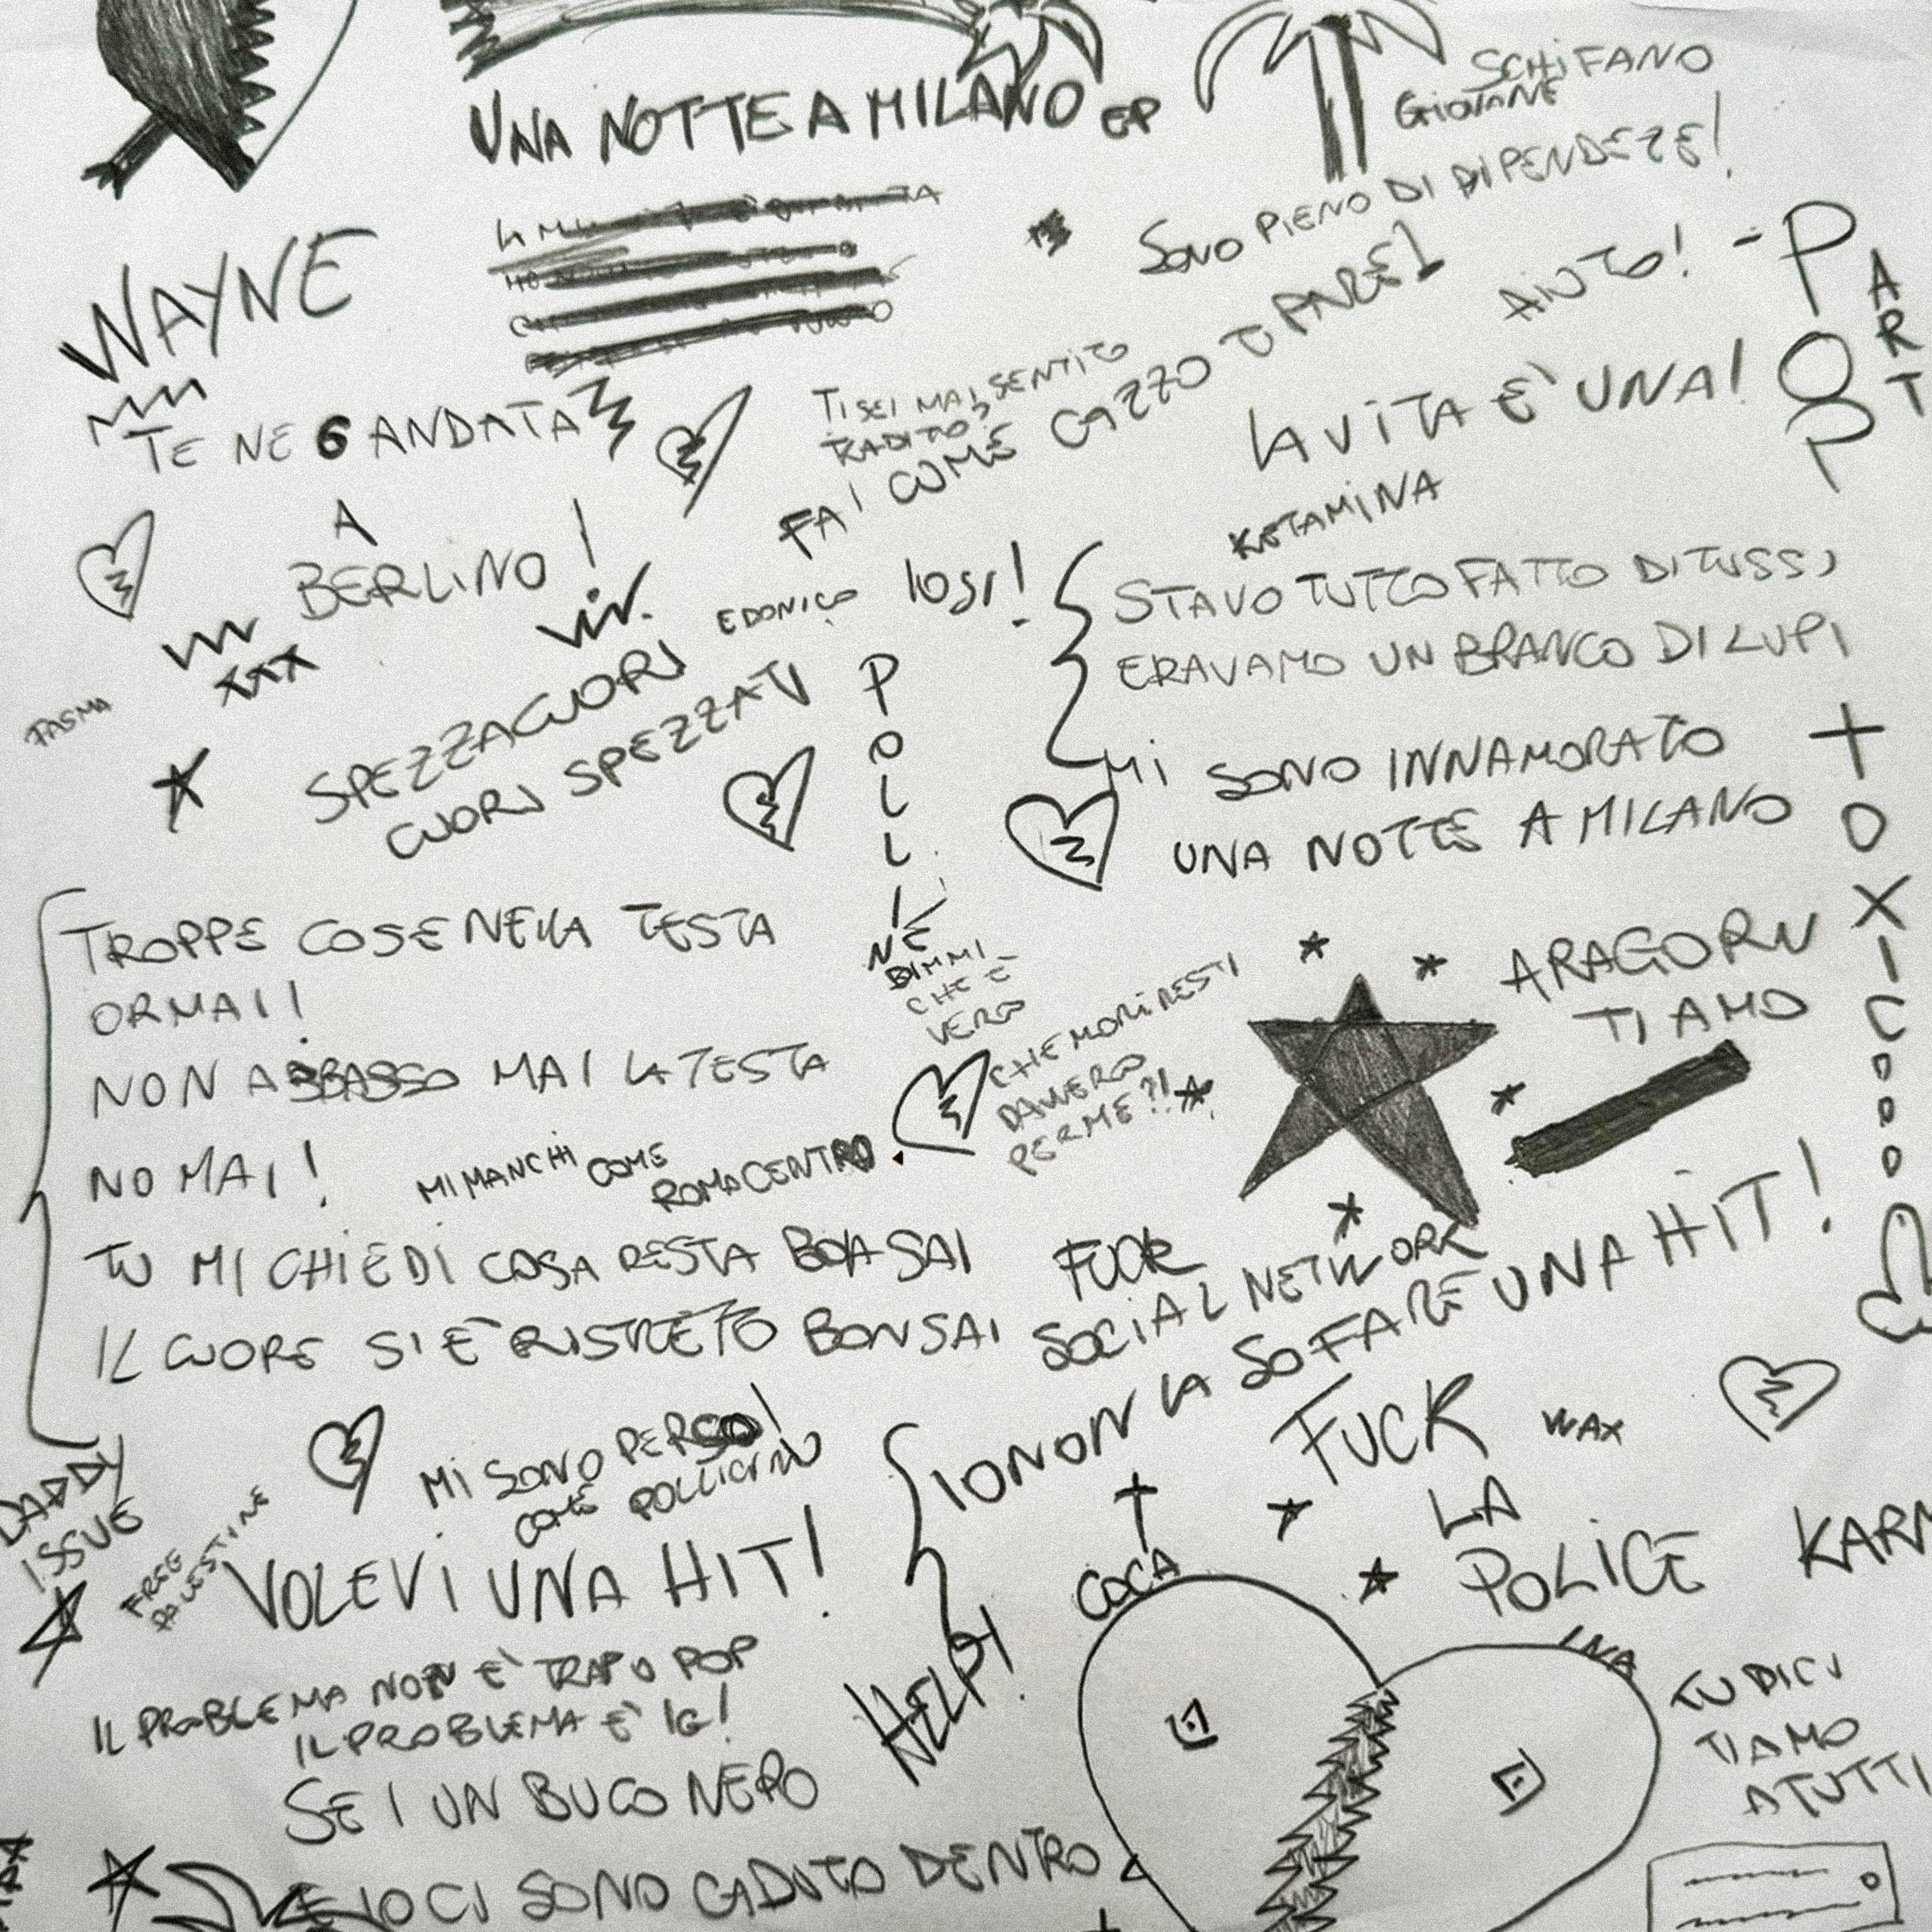 UNA NOTTE A MILANO EP
SCHIFANO
GIOVANE
SONO PIENO DI DIPENDEZE!
AIUTO!
- POP
PART
WAYNE
TE NE 6 ANDATA
A
BERLINO!
TI SEI MAI SENTITO
TRADITO?
FAI COME CAZZO TI PARE!
LA VITA È UNA!
KETAMINA
EDONICO
XXX
FASMA
SPEZZACUORI
CUORI SPEZZATI
STAVO TUTTO FATTO DI TUSS,
ERAVAMO UN BRANCO DI LUPI
MI SONO INNAMORATO
UNA NOTTE A MILANO
TOXIC
TROPPE COSE NELLA TESTA
ORMAI!
NON ABBASSO MAI LA TESTA
NO MAI!
MI MANCHI COME
ROMA CENTRO
TU MI CHIEDI COSA RESTA BONSAI
IL CUORE SI È RISTRETTO BONSAI
DIMMI
CHE È
VERO
CHE MORIRESTI
DAVVERO
PER ME?!
ARAGORN
TI AMO
FUCK
SOCIAL NETWORK
IO NON LA SO FARE UNA HIT!
FUCK
LA
POLICE
WAX
KARM
MI SONO PERSO!
COME POLLICINO
DADDY
ISSUE
FREE
PALESTINE
VOLEVI UNA HIT!
IL PROBLEMA NON È TRAP O POP
IL PROBLEMA È IG!
HELP!
COCA
INA
SEI UN BUCO NERO
E IO CI SONO CADUTO DENTRO
TU DICI
TI AMO
A TUTTI